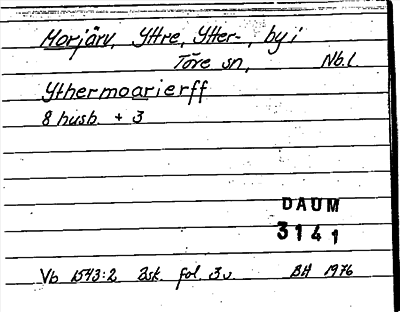 Morjärv, Yttre, Ytter-, by i
Töre sn, Nb.l.
Ythermoarierff
8 husb. + 3
DAUM
3141
Vb 1543:2 Åsk. fol. 3 v. BH 1976